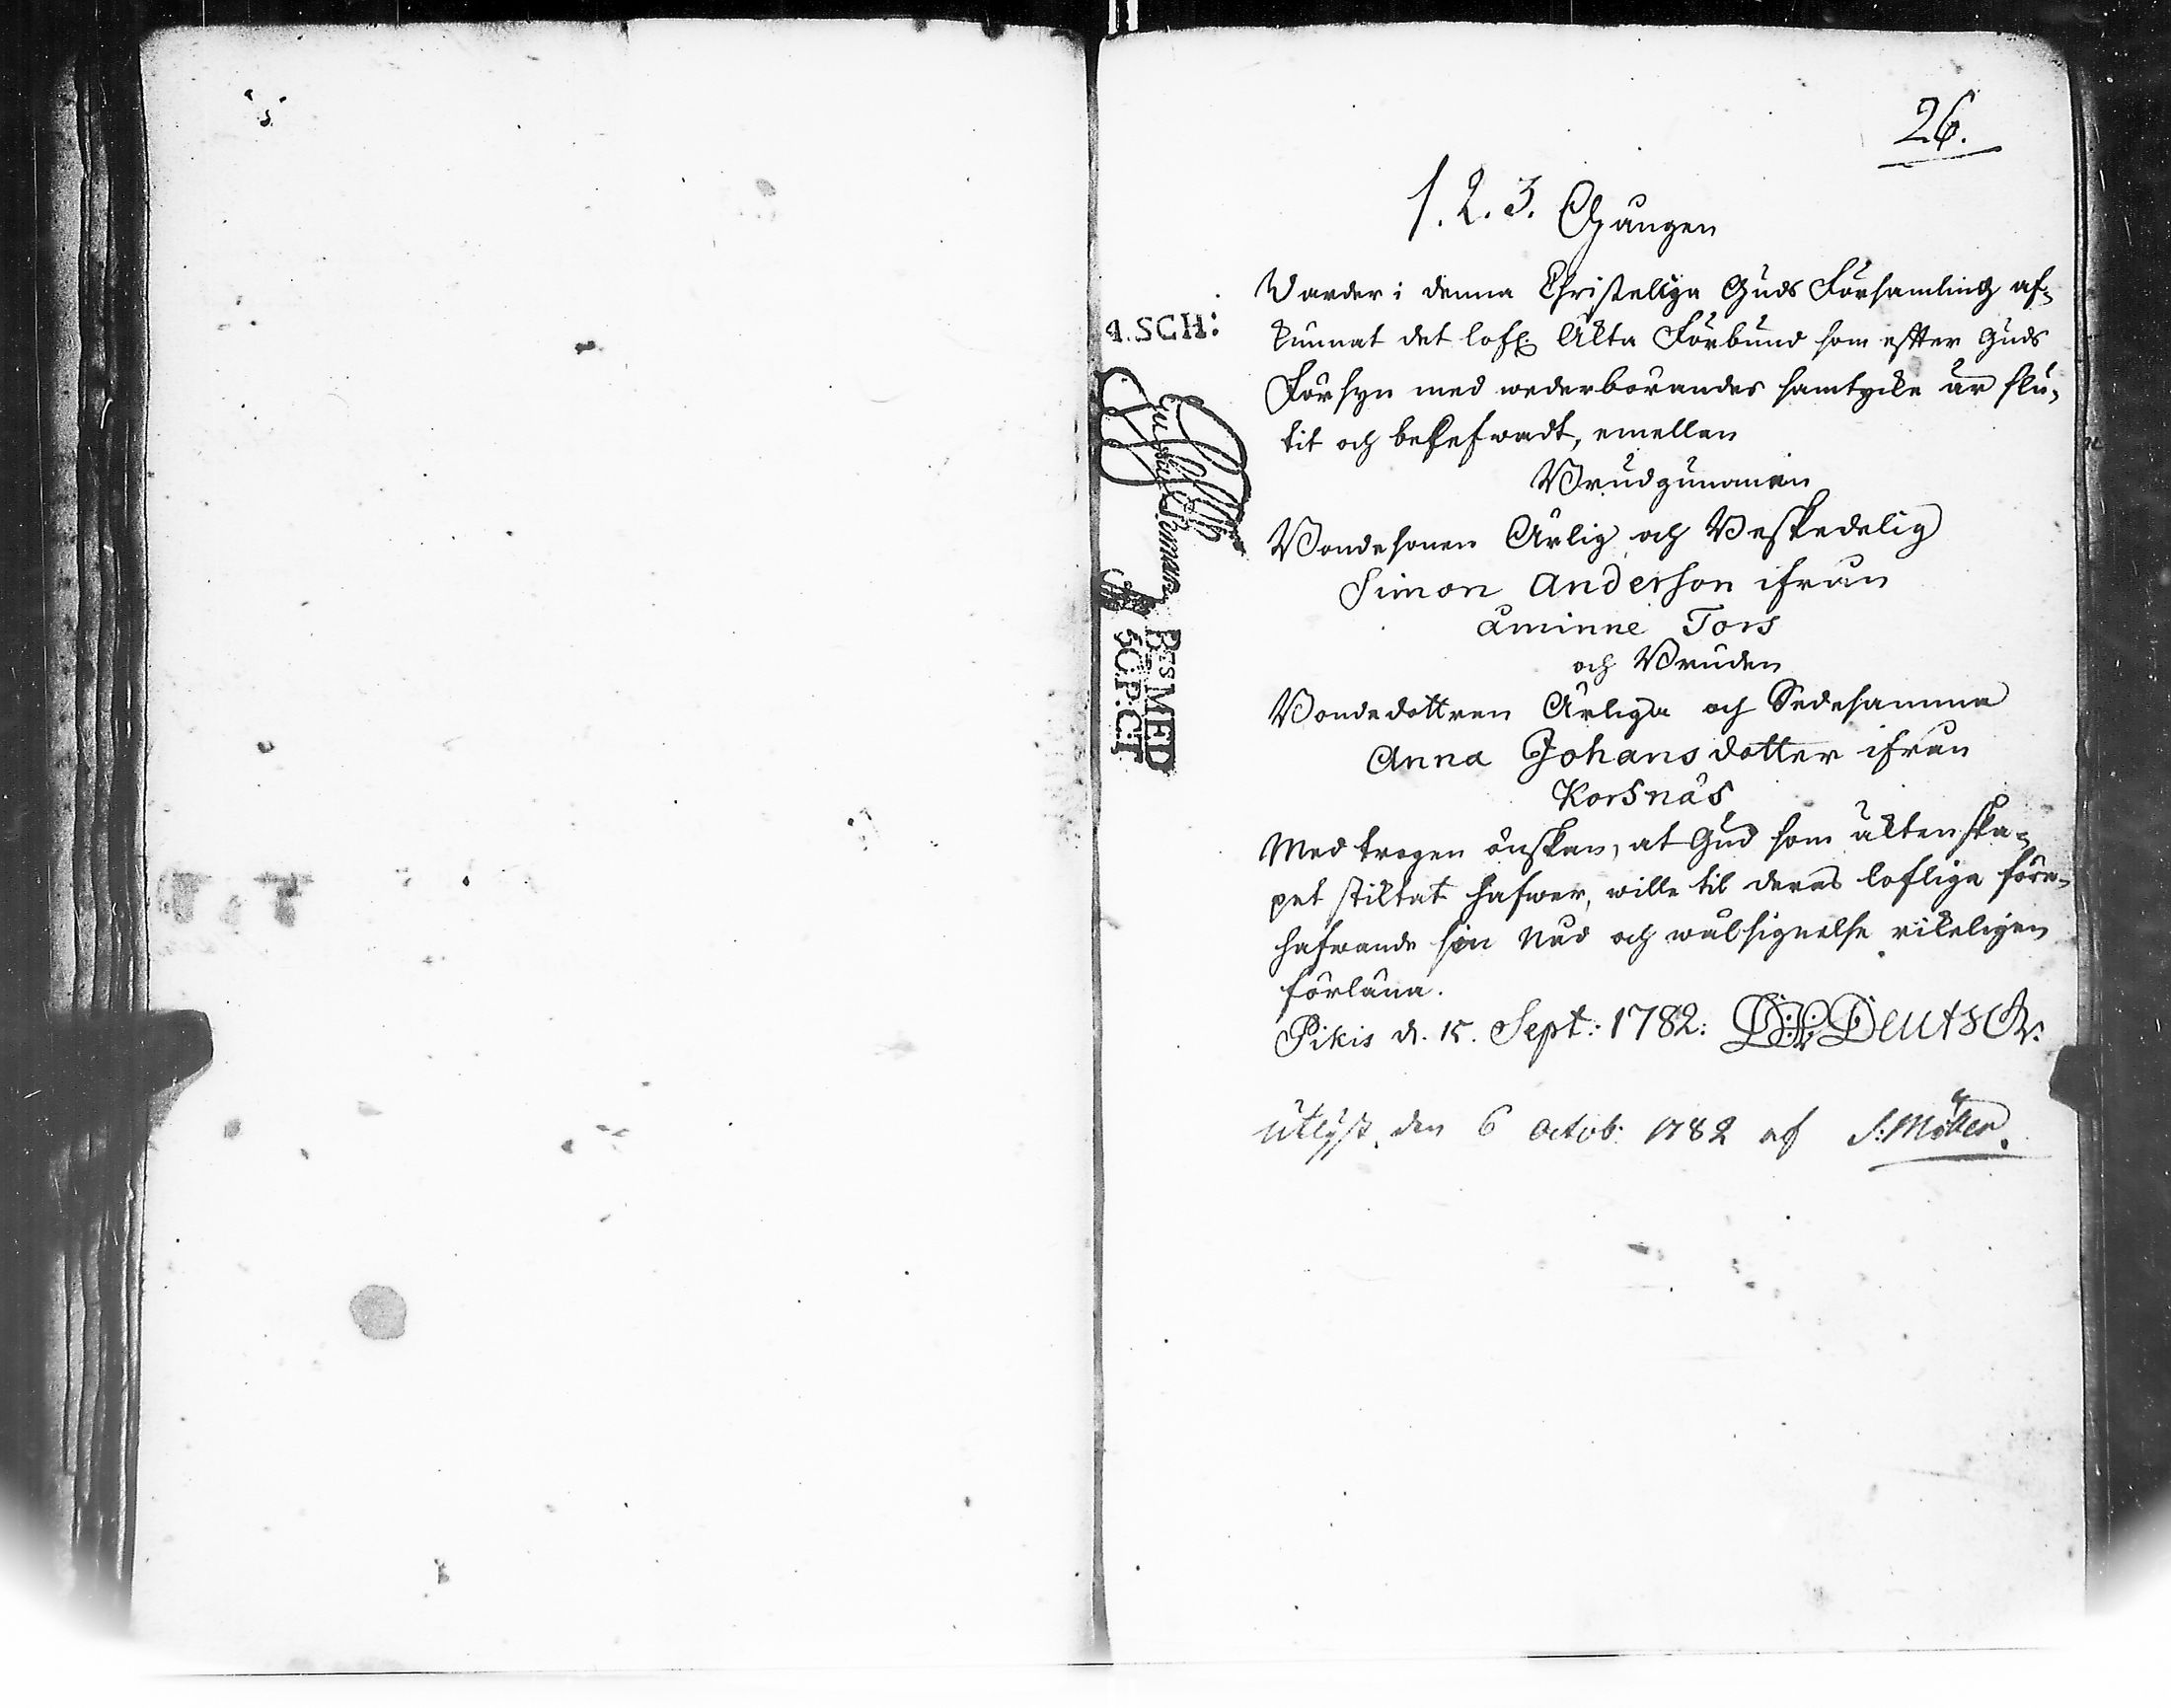 26.
1. 2. 3. Gången
Warder i denna Christeliga Guds Församling af-
kunnat det lofl. Ächta Förbund som efter Guds
Försyn med wederbörandes samtycke är slu-
tit och besefwadt, emellan
Brudgumanen
Bondesonen Ärlig och Beskedelig
Simon Anderson ifrån
Åminne Tors
och Bruden
Bondedottren Ärliga och Sedesamma
Anna Johansdotter ifrån
Korsnäs
Med trogen önskan, at Gud som ächtenska-
pet stiktat hafwer, wille til deras lofliga före-
hafwande sin Nåd och wälsignelse rikeligen
förläna.
Pikis d. 15. Sept: 1782: Deutsch:
Utlyst den 6 Octob: 1782 af S: Möller.
4. SCH:
BES MED
5 C. P. CT